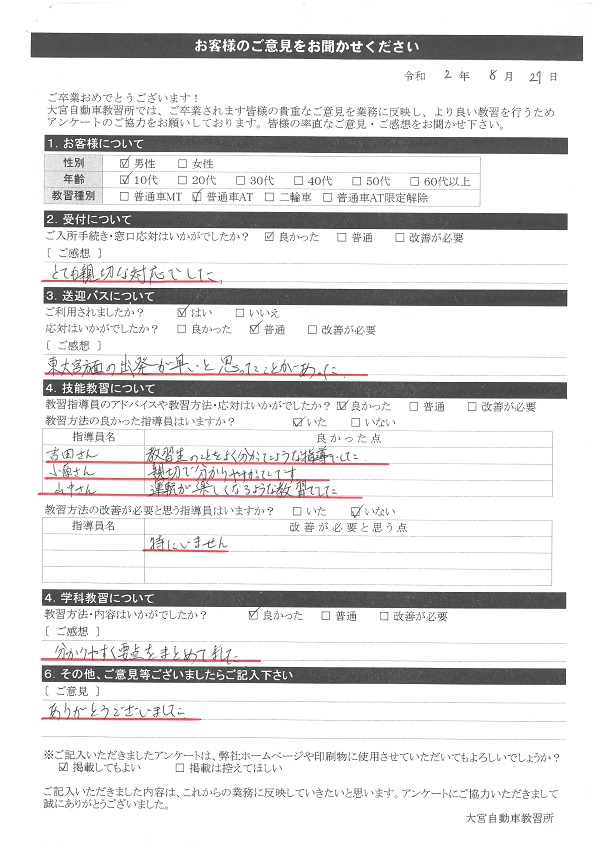 お客様のご意見をお聞かせください
令和 2 年 8 月 29 日
ご卒業おめでとうございます！
大宮自動車教習所では、ご卒業されます皆様の貴重なご意見を業務に反映し、より良い教習を行うため
アンケートのご協力をお願いしております。皆様の率直なご意見・ご感想をお聞かせ下さい。
1. お客様について
性別 ☑ 男性 □ 女性
年齢 ☑ 10代 □ 20代 □ 30代 □ 40代 □ 50代 □ 60代以上
教習種別 □ 普通車MT ☑ 普通車AT □ 二輪車 □ 普通車AT限定解除
2. 受付について
ご入所手続き・窓口応対はいかがでしたか？ ☑ 良かった □ 普通 □ 改善が必要
[ ご感想 ]
とても親切な対応でした。
3. 送迎バスについて
ご利用されましたか？ ☑ はい □ いいえ
応対はいかがでしたか？ □ 良かった ☑ 普通 □ 改善が必要
[ ご感想 ]
東大宮方面の出発が早いと思ったことがあった
4. 技能教習について
教習指導員のアドバイスや教習方法・応対はいかがでしたか？ ☑ 良かった □ 普通 □ 改善が必要
教習方法の良かった指導員はいますか？ ☑ いた □ いない
指導員名 良かった点
吉田さん 教習生のことをよく分かってたような指導でした
小原さん 親切で分かりやすかったです
山中さん 運転が楽しくなるような教習でした
教習方法の改善が必要と思う指導員はいますか？ □ いた ☑ いない
指導員名 改善が必要と思う点
特にいません
4. 学科教習について
教習方法・内容はいかがでしたか？ ☑ 良かった □ 普通 □ 改善が必要
[ ご感想 ]
分かりやすく要点をまとめてくれた
6. その他、ご意見等ございましたらご記入下さい
[ ご意見 ]
ありがとうございました
※ご記入いただきましたアンケートは、弊社ホームページや印刷物に使用させていただいてもよろしいでしょうか？
☑ 掲載してもよい □ 掲載は控えてほしい
ご記入いただきました内容は、これからの業務に反映していきたいと思います。アンケートにご協力いただきまして
誠にありがとうございました。
大宮自動車教習所